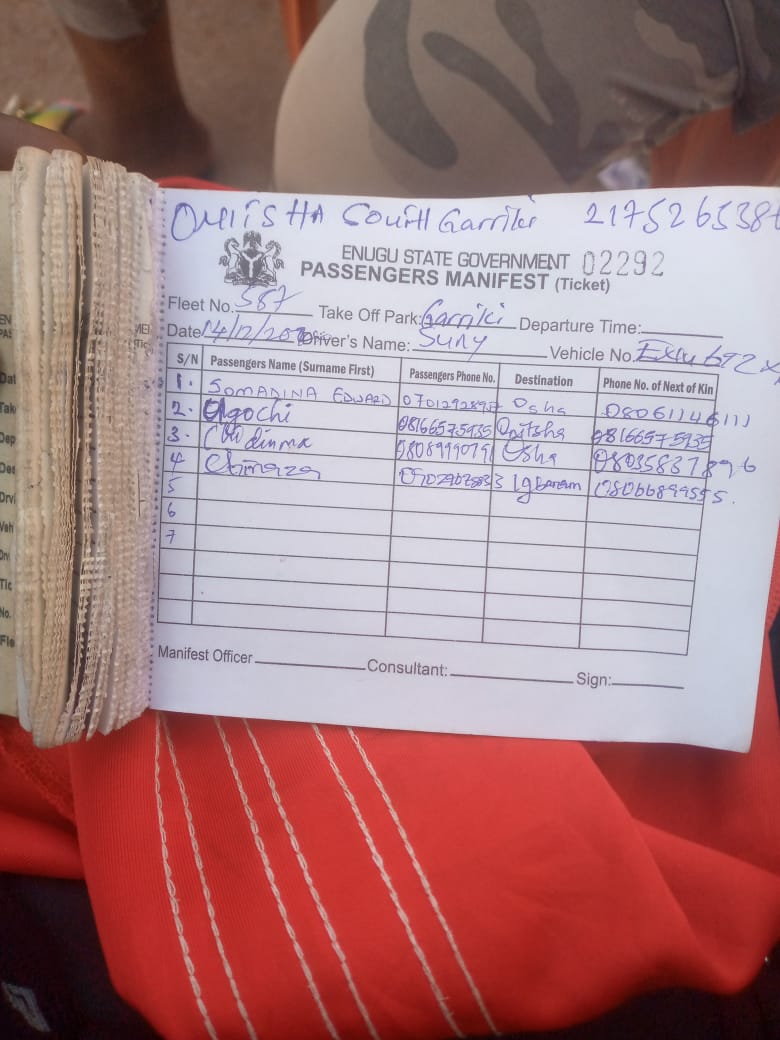 ONIISHA South Garriki 217526538
ENUGU STATE GOVERNMENT 02292
PASSENGERS MANIFEST (Ticket)
Fleet No. 587 Take Off Park: Garriki Departure Time:
Date 14/12/20 Driver's Name: Suny Vehicle No.
S/N Passengers Name (Surname First) Passengers Phone No. Destination Phone No. of Next of Kin
1. SOMADINA EDWARD Osha 08061146111
2. Ugochi 08166575935 Onitsha 08166575935
3. Chidinma Osha
4 Chinaza Igbariam 08066899555.
5
6
7
Manifest Officer Consultant: Sign: